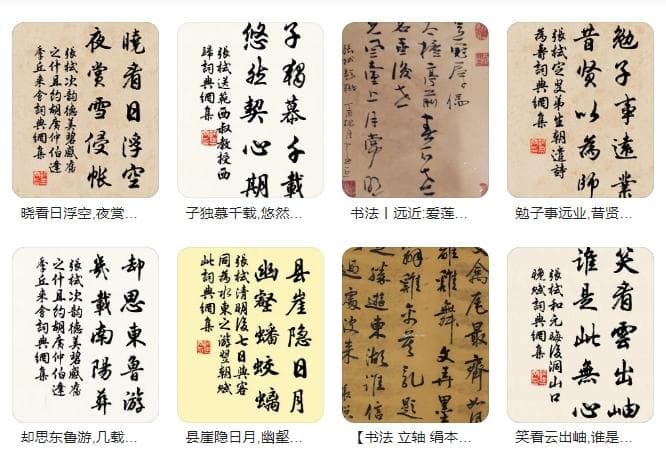 曉看日浮空
夜賞雪侵帳
張栻次韵德美碧感舊
之什且約胡廣仲伯逢
季丘来會詞典網集
子獨慕千載
悠然契心期
張栻送范西叔教授西
歸詞典網集
勉子事遠業
昔賢以為師
張栻定叟弟生朝遣詩
為壽詞典網集
晓看日浮空,夜赏...
子独慕千载,悠然...
书法丨远近:爱莲...
勉子事远业,昔贤...
却思東魯游
幾載南陽葬
張栻次韵德美碧感舊
之什且約胡廣仲伯逢
季丘来會詞典網集
县崖隐日月
幽壑蟠蛟螭
張栻清明後七日與客
同為水東之游翌朝賦
此詞典網集
禽尾最齊如
之勝遊東湖誰信
笑看雲出岫
誰是此無心
張栻和元晦後洞山口
晚賦詞典網集
却思东鲁游,几载...
县崖隐日月,幽壑...
【书法 立轴 绢本...
笑看云出岫,谁是...